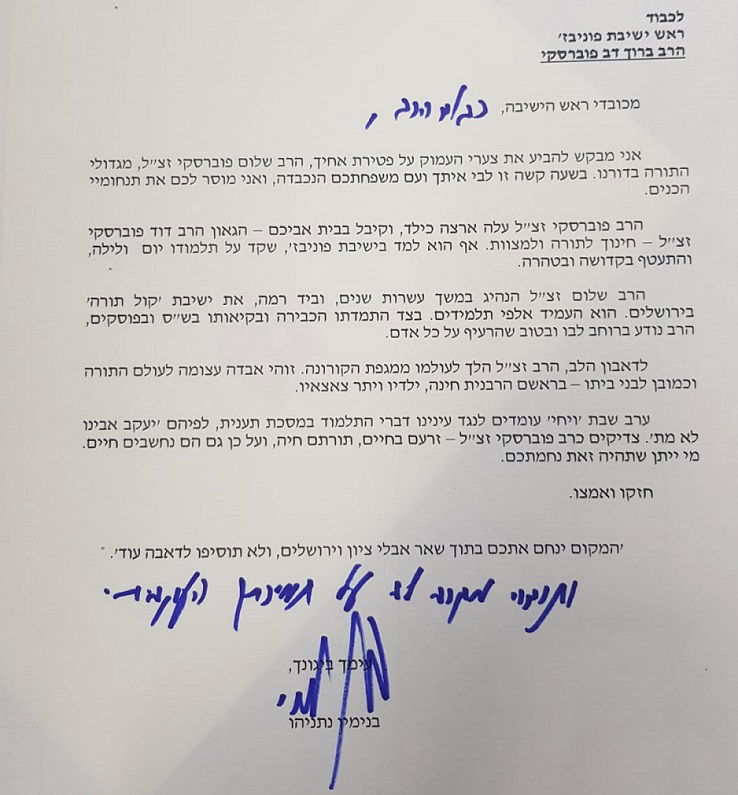 לכבוד
ראש ישיבת פוניבז'
הרב ברוך דב פוברסקי
מכובדי ראש הישיבה, כבוד הרב,
אני מבקש להביע את צערי העמוק על פטירת אחיך, הרב שלום פוברסקי זצ"ל, מגדולי
התורה בדורנו. בשעה קשה זו לבי איתך ועם משפחתכם הנכבדה, ואני מוסר לכם את תנחומיי
הכנים.
הרב פוברסקי זצ"ל עלה ארצה כילד, וקיבל בבית אביכם – הגאון הרב דוד פוברסקי
זצ"ל – חינוך לתורה ולמצוות. אף הוא למד בישיבת פוניבז', שקד על תלמודו יום ולילה,
והתעטף בקדושה ובטהרה.
הרב שלום זצ"ל הנהיג במשך עשרות שנים, וביד רמה, את ישיבת 'קול תורה'
בירושלים. הוא העמיד אלפי תלמידים. בצד התמדתו הכבירה ובקיאותו בש"ס ובפוסקים,
הרב נודע ברוחב לבו ובטוב שהרעיף על כל אדם.
לדאבון הלב, הרב זצ"ל הלך לעולמו ממגפת הקורונה. זוהי אבדה עצומה לעולם התורה
וכמובן לבני ביתו – בראשם הרבנית חינה, ילדיו ויתר צאצאיו.
ערב שבת 'ויחי' עומדים לנגד עינינו דברי התלמוד במסכת תענית, לפיהם 'יעקב אבינו
לא מת'. צדיקים כרב פוברסקי זצ"ל – זרעם בחיים, תורתם חיה, ועל כן גם הם נחשבים חיים.
מי ייתן שתהיה זאת נחמתכם.
חזקו ואמצו.
'המקום ינחם אתכם בתוך שאר אבלי ציון וירושלים, ולא תוסיפו לדאבה עוד'.
לך על תמיכתך
עימך ביגונך,
בנימין נתניהו